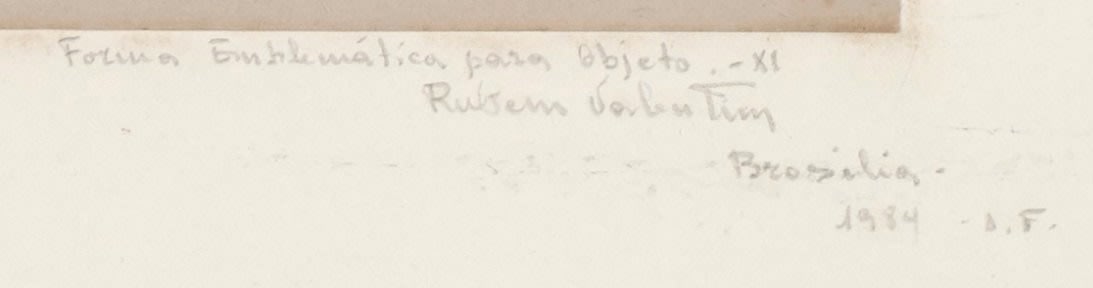 Forma Emblemática para Objeto. - XI
Rubem Valentim
Brasilia -
1984 - D. F.